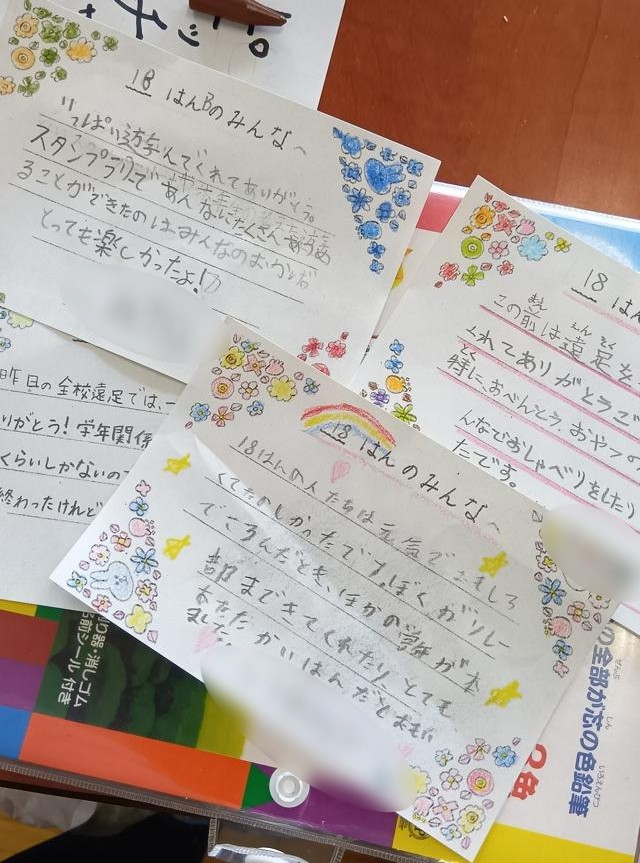 ピッ
18 はんBのみんなへ
いっぱい遊んでくれてありがとう。
スタンプラリで あんなにたくさん
ることができたのはみんなのおかげ
とっても楽しかったよ!
18 はん
この前は遠足を
まえ
えんそく
くれてありがとうご
特に、おべんとう、おやつの
んなでおしゃべりをしたり
たです。
昨日の全校遠足では、一
りがとう!学年関係
くらいしかないの
終わったけれど
18 はんのみんなへ
18はんの人たちは元気で おもしろ
くてたのしかったです。ぼくが リレー
でころんだとき、ほかの学年が本
部まできてくれたり、とても
あたた かいはんだとおもい
ました。
り器・消しゴム
名前シール付き
の全部が芯の色鉛筆
ぜんぶ
しん
いろえんぴつ
色